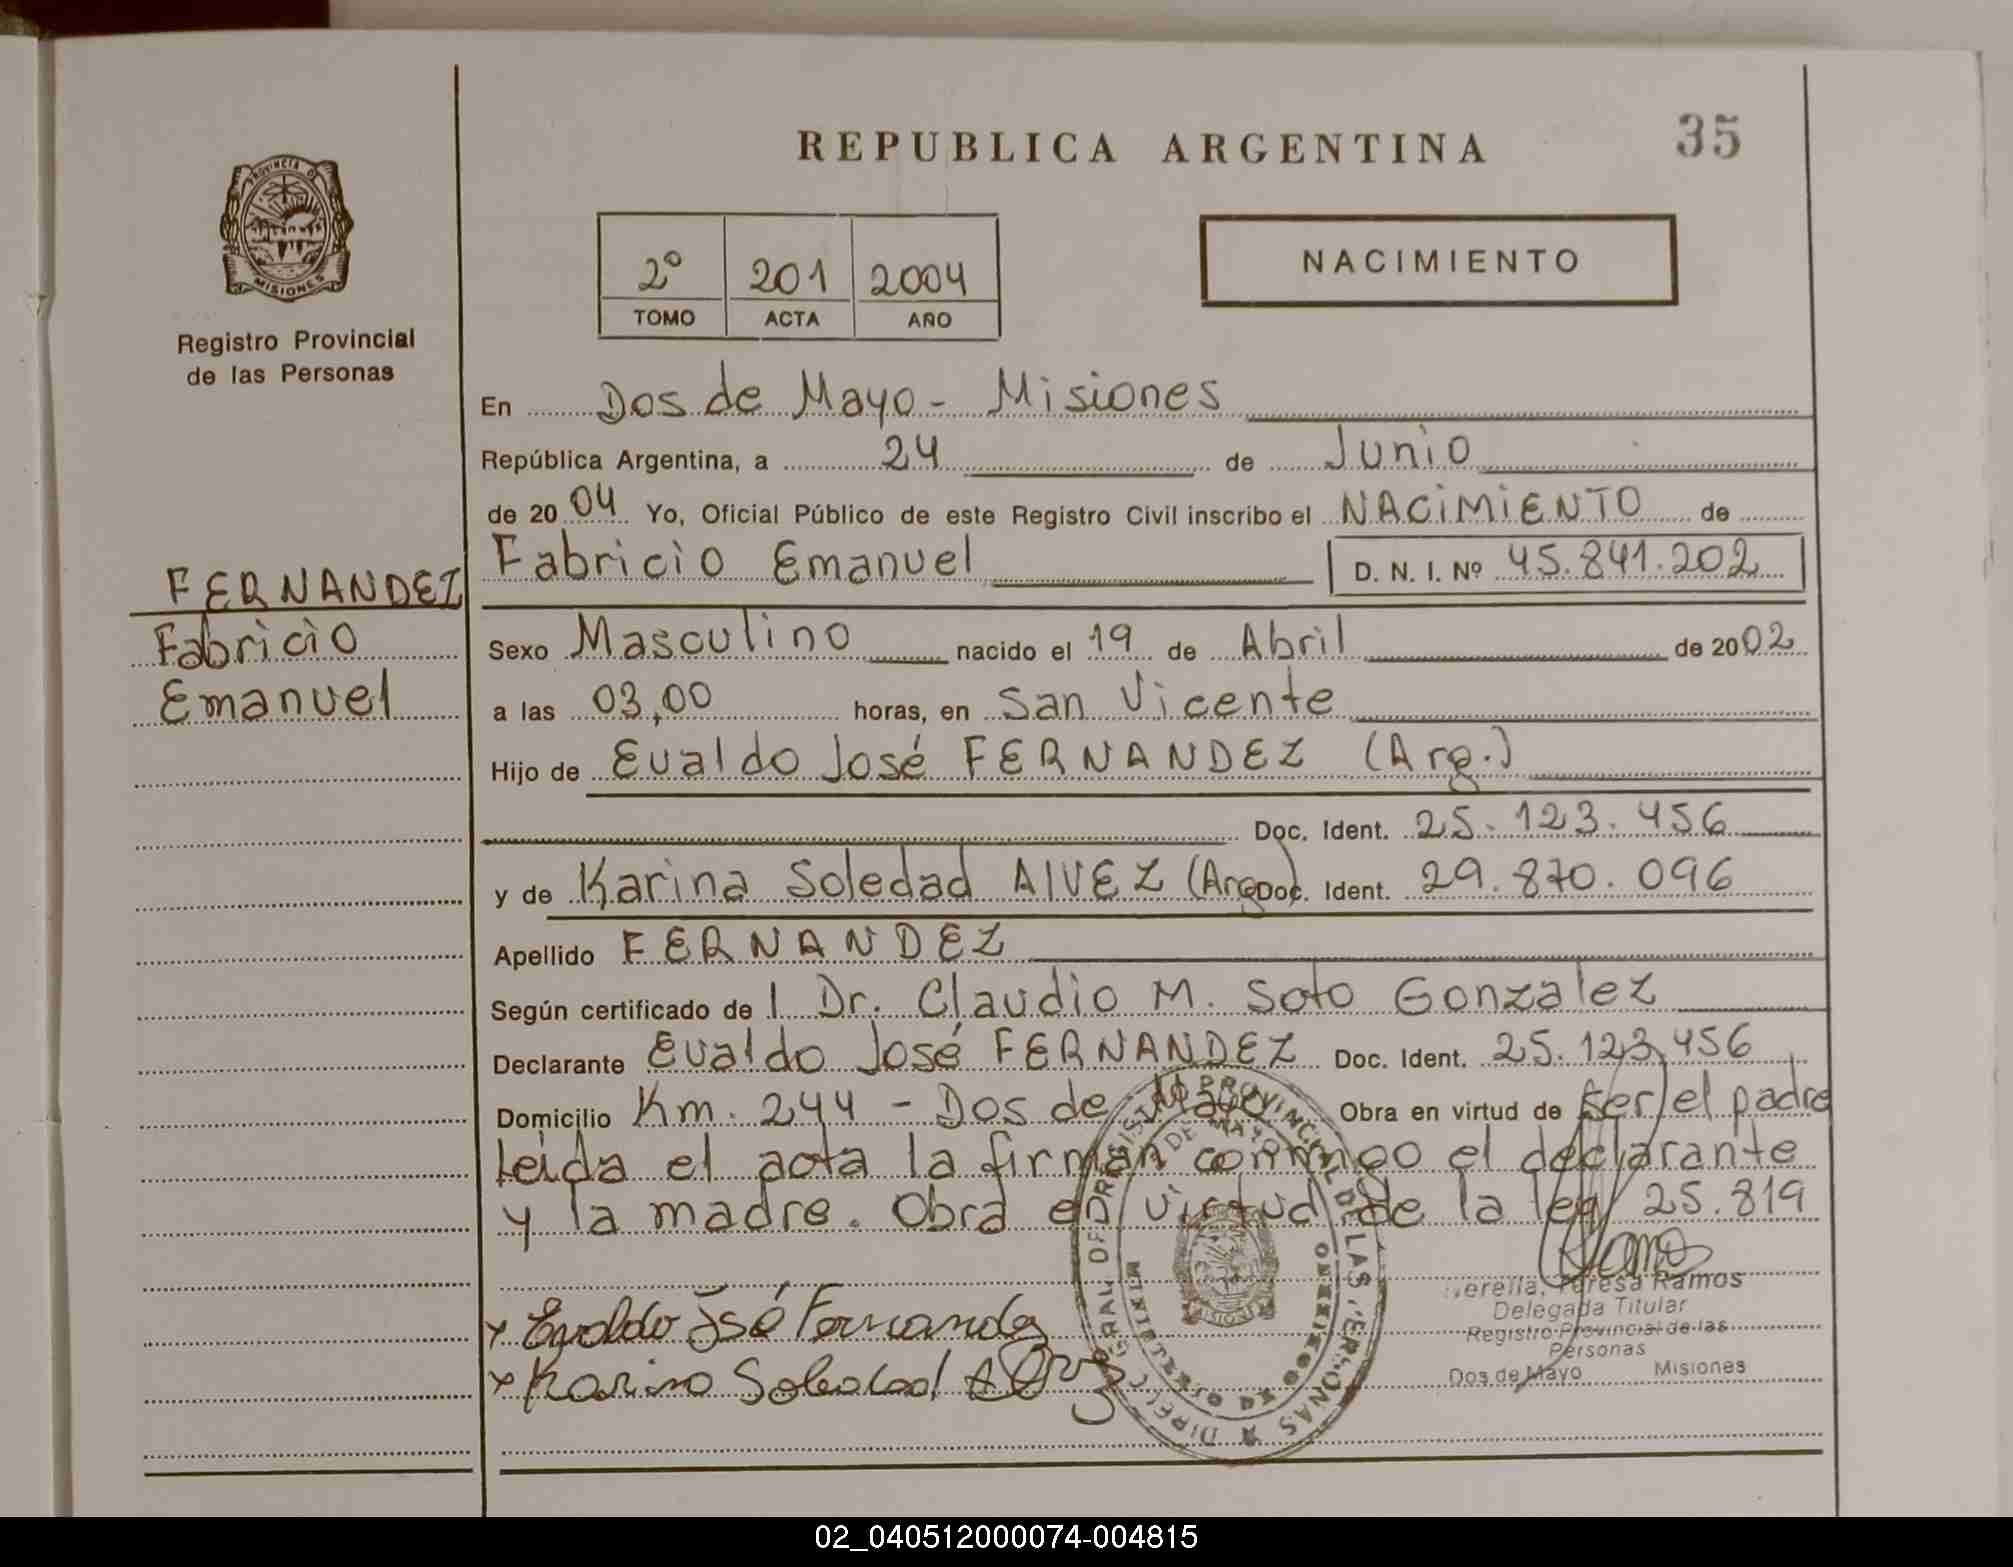 REPUBLICA ARGENTINA
35
PROVINCIA DE
MISIONES
Registro Provincial
de las Personas
2º 201 2004
TOMO ACTA AÑO
NACIMIENTO
En Dos de Mayo - Misiones
República Argentina, a 24 de Junio
de 2004 Yo, Oficial Público de este Registro Civil inscribo el NACIMIENTO de
Fabricio Emanuel D. N. I. Nº 45.841.202
FERNANDEZ
Fabricio
Emanuel
Sexo Masculino nacido el 19 de Abril de 2002
a las 03,00 horas, en San Vicente
Hijo de Evaldo José FERNANDEZ (Arg.)
Doc. Ident. 25.123.456
y de Karina Soledad AlVEZ (Arg.) Doc. Ident. 29.870.096
Apellido FERNANDEZ
Según certificado de l Dr. Claudio M. Soto Gonzalez
Declarante Evaldo José FERNANDEZ Doc. Ident. 25.123.456
Domicilio Km. 244 - Dos de Mayo Obra en virtud de ser el padre
Leida el acta la firman conmigo el declarante
y la madre. Obra en virtud de la ley 25.819
Evaldo José Fernandez
Karina Soledad Alvez
Teresa Ramos
Delegada Titular
Registro Provincial de las
Personas
Dos de Mayo Misiones
02_040512000074-004815